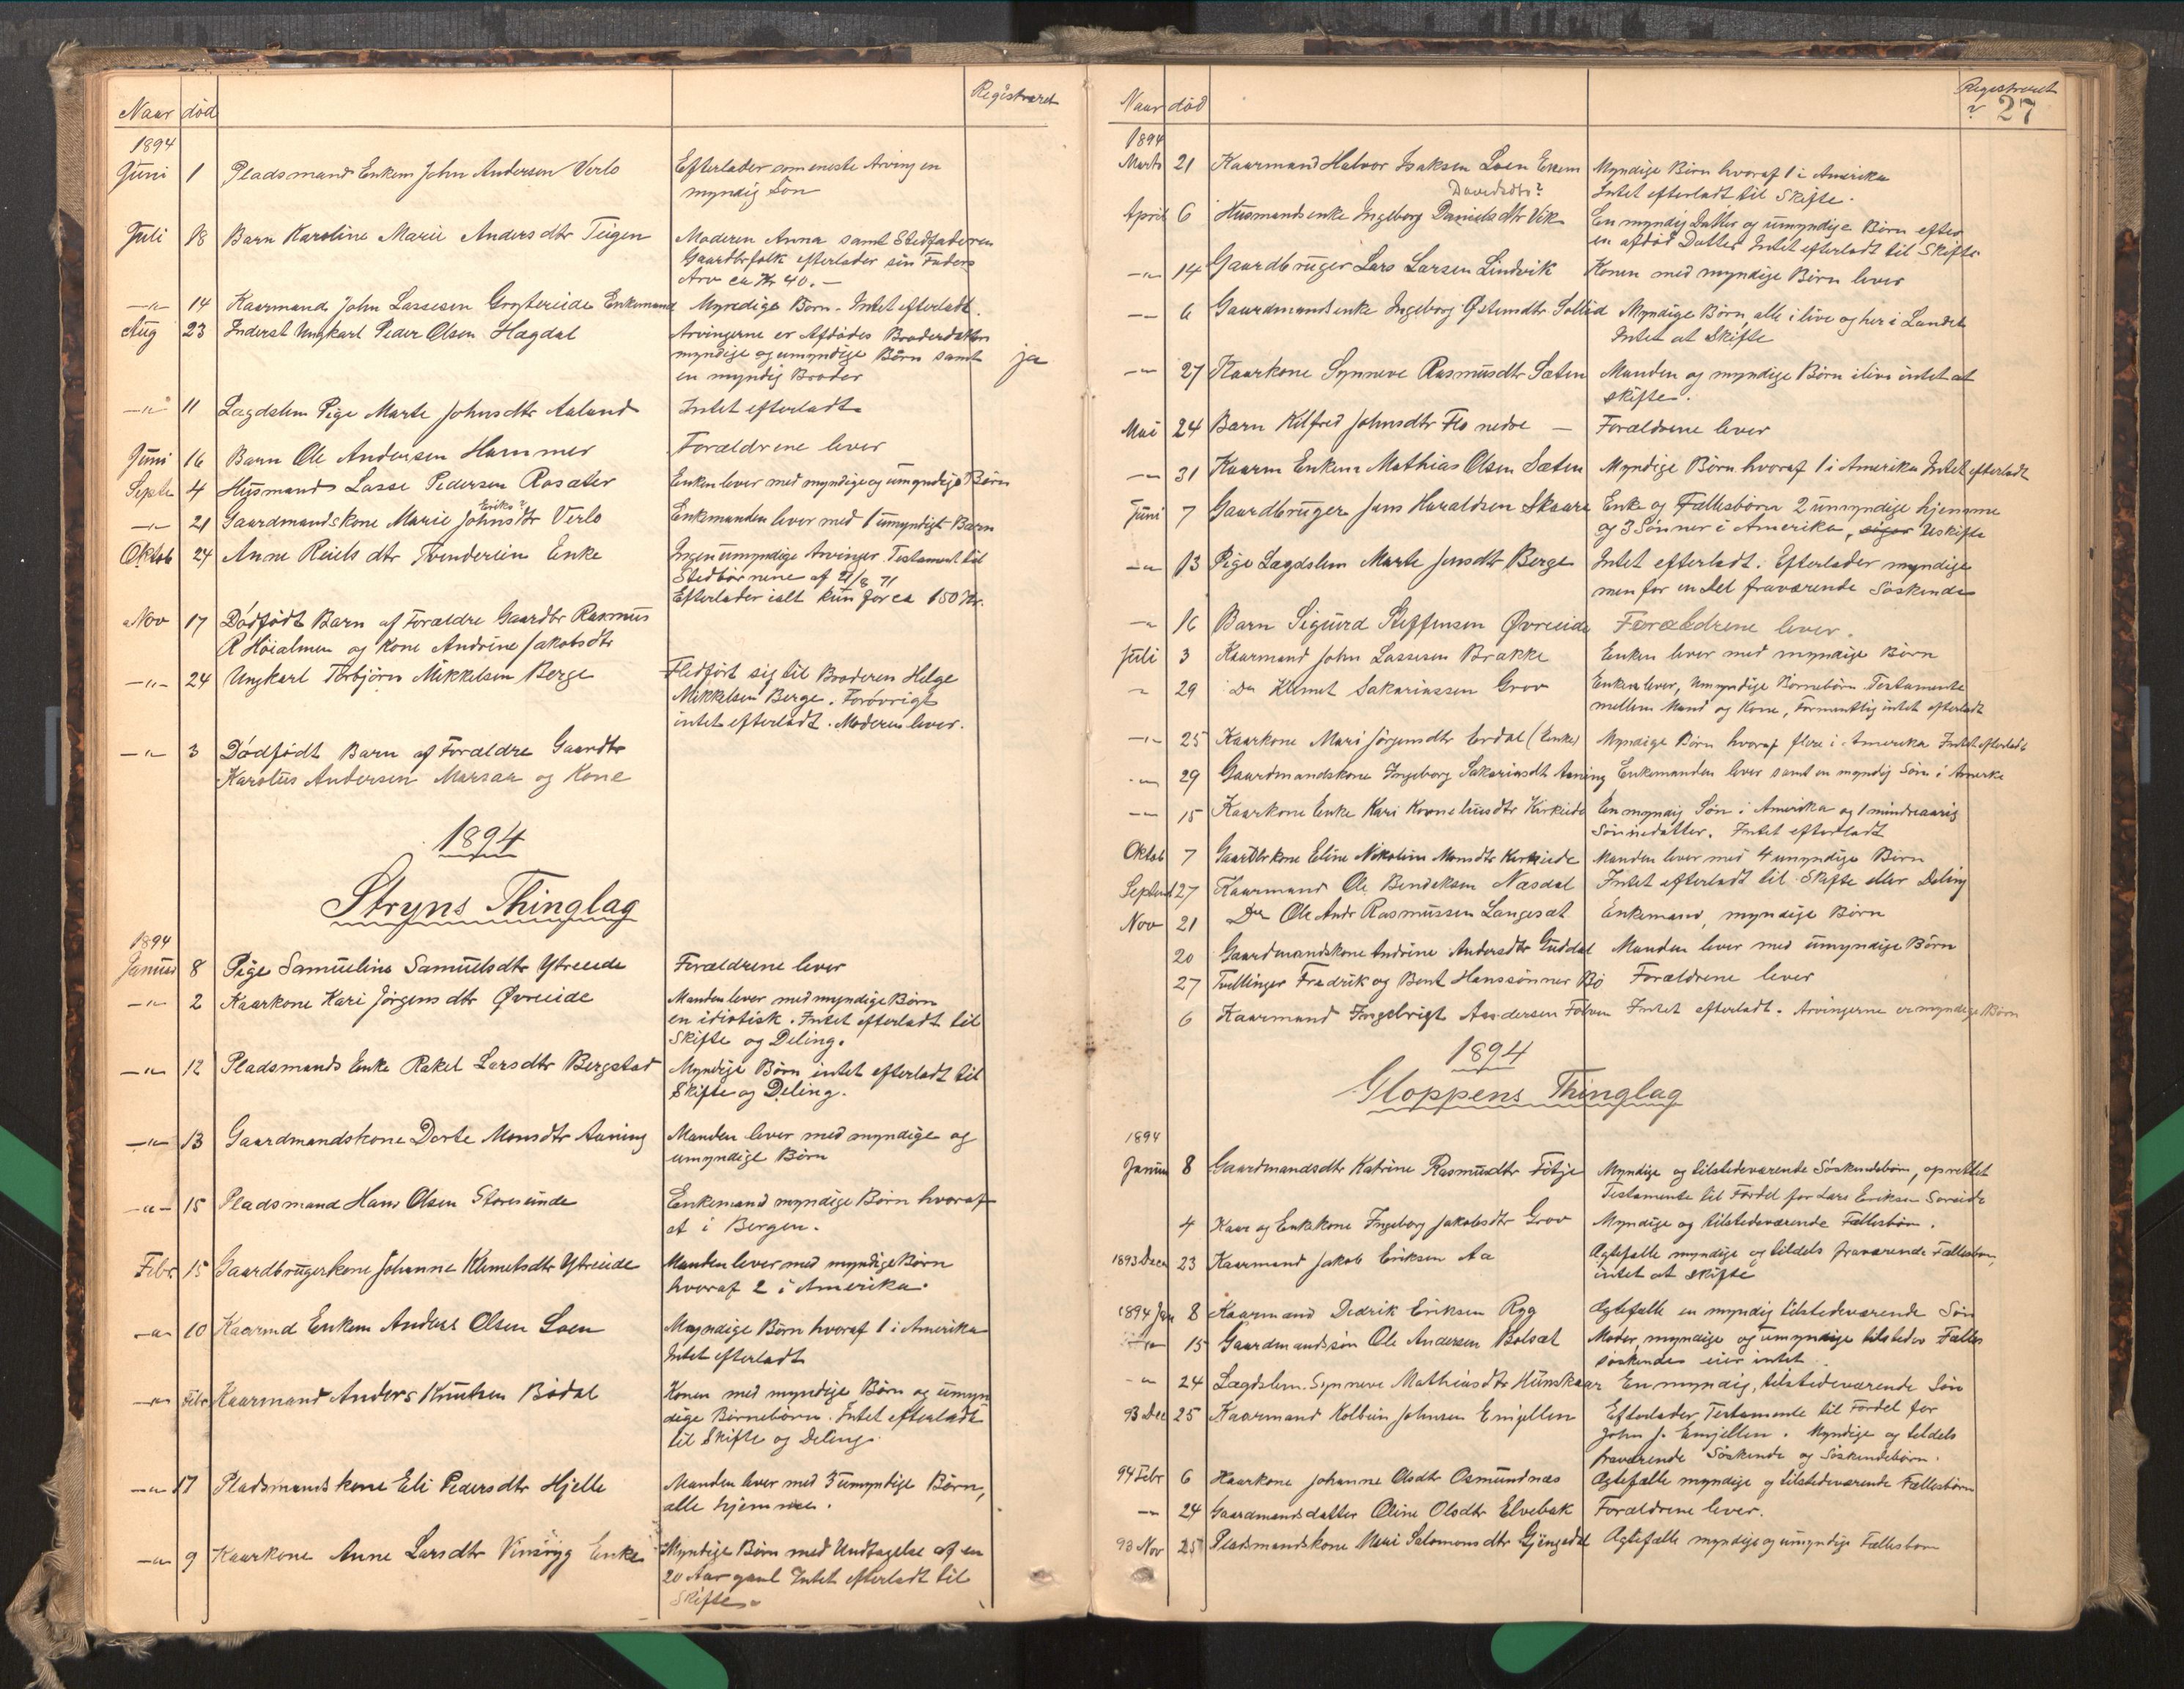 Naar død Registreret
1894
Juni 1 Pladsmand Enkem John Andersen Verlo Efterlader som eneste Arving en
myndig Søn
Juli 18 Barn Karoline Marie Andersdtr Teigen Moderen Anna samt Stedfaderen
Gaardbrfolk efterlader sin Faders
Arv ca Kr 40.-
—"— 14 Kaarmand John Lassesen Enkemand Myndige Børn. Intet efterladt.
Aug 23 Inderst Ungkarl Peder Olsen Hagdal Arvingerne er Afdødes Broderdatters
myndige og umyndige Børn samt ja
en myndig Broder
—"— 11 Lægdslem Pige Marte Johnsdtr Aaland Intet efterladt
Juni 16 Barn Ole Andersen Hammer Forældrene lever
Septe 4 Husmand Lasse Pedersen Rosæter Enken lever med myndige og umyndige Børn
Eriks?
—"— 21 Gaardmandskone Marie Johnsdtr Verlo Enkemanden lever med 1 umyndigt Barn
Oktob 24 Anne Reielsdtr Enke Ingen umyndige Arvinger. Testament til
Stedbørnene af 21/8 71
Efterlader ialt kun for ca 150 Kr.
Nov 17 Dødfødt Barn af Forældre Gaardbr Rasmus
R Hoialmen og Kone Andrine Jakobsdtr
—"— 24 Ungkarl Torbjørn Mikkelsen Berge Fledført sig til Broderen Helge
Mikkelsen Berge. Forøvrigt
intet efterladt. Moderen lever.
—"— 3 Dødfødt Barn af Forældre Gaardbr
Karolus Andersen Marsaa og Kone
1894
Stryns Thinglag
1894
Januar 8 Pige Samueline Samuelsdtr Ytreeide Forældrene lever
—"— 2 Kaarkone Kari Jørgensdtr Øvreeide Manden lever med myndige Børn
en idiotisk. Intet efterladt til
Skifte og Deling.
—"— 12 Pladsmands Enke Rakel Larsdtr Bergstad Myndige Børn intet efterladt til
Skifte og Deling.
—"— 13 Gaardmandskone Dorte Monsdtr Aaning Manden lever med myndige og
umyndige Børn
—"— 15 Pladsmand Hans Olsen Storesunde Enkemand myndige Børn hvoraf
et i Bergen.
Febr 15 Gaardbrugerkone Johanne Klemetsdtr Ytreeide Manden lever med myndige Børn
hvoraf 2 i Amerika.
—"— 10 Kaarmd Enkem Anders Olsen Loen Myndige Børn hvoraf 1 i Amerika
Intet efterladt
—"— Febr Kaarmand Anders Knutsen Bødal Konen med myndige Børn og umyn
dige Børnebørn. Intet efterladt
til Skifte og Deling.
—"— 17 Pladsmandskone Eli Pedersdtr Hjelle Manden lever med 3 umyndige Børn,
alle hjemme.
—"— 9 Kaarkone Anne Larsdtr Vinsrygg Enke Myndige Børn med Undtagelse af en
20 Aar gaml Intet efterladt til
Skifte
Naar død Registreret
27
1894
Marts 21 Kaarmand Halvor Isaksen Loen Enkem Myndige Børn hvoraf 1 i Amerika
Davidsdtr? Intet efterladt til Skifte.
April 6 Husmandsenke Ingeborg Danielsdtr Vik En myndig Datter og umyndige Børn efter
en afdød Datter. Intet efterladt til Skifte
—"— 14 Gaardbruger Lars Larsen Lindvik Konen med myndige Børn lever
—"— 6 Gaardmandsenke Ingeborg Østensdtr Sollid Myndige Børn, alle i live og her i Landet
Intet at Skifte
—"— 27 Kaarkone Synneve Rasmusdtr Sæten Manden og myndige Børn ilive intet at
skifte.
Mai 24 Barn Kilfred Johnsdtr Flo nedre — Forældrene lever
—"— 31 Kaarm Enkem Mathias Olsen Sæten Myndige Børn hvoraf 1 i Amerika Intet efterladt
Juni 7 Gaardbruger Jens Haraldsen Skaare Enke og Fællesbørn 2 umyndige hjemme
og 3 Sønner i Amerika, Uskifte
—"— 13 Pige Lægdslem Marte Jensdtr Berge Intet efterladt. Efterlader myndige
men for en Del fraværende Søskende
—"— 16 Barn Sigurd Steffensen Øvreeide Forældrene lever.
Juli 3 Kaarmand John Lassesen Brække Enken lever med myndige Børn
" 29 Do Klemet Sakariassen Grov Enken lever, Umyndige Børnebørn Testamente
mellem Mand og Kone, Formentlig intet efterladt
—"— 25 Kaarkone Mari Jørgensdtr Erdal (Enke) Myndige Børn hvoraf flere i Amerika Intet efterladt
—"— 29 Gaardmandskone Ingeborg Sakariasdtr Aaning Enkemanden lever samt en myndig Søn i Amerika
—"— 15 Kaarkone Enke Kari Korneliusdtr Kirkeide En myndig Søn i Amerika og 1 mindreaarig
Sønnedatter. Intet efterladt
Oktob 7 Gaardbrkone Eline Nikoline Monsdtr Kirkeide Manden lever med 4 umyndige Børn
Septemb 27 Kaarmand Ole Bendiksen Næsdal Intet efterladt til Skifte eller Deling
Nov 21 Do Ole Andr Rasmussen Langesæt Enkemand, myndige Børn
20 Gaardmandskone Andrine Andersdtr Guddal Manden lever med umyndige Børn
27 Tvillinger Fredrik og Bent Hanssønner Bø Forældrene lever
6 Kaarmand Ingebrigt Andersen Folven Intet efterladt. Arvingerne er myndige Børn
1894
Gloppens Thinglag
1894
Januar 8 Gaardmandsdtr Katrine Rasmusdtr Føtje Myndige og tilstedeværende Søskendebørn, oprettet
Testamente til Fordel for Lars Eriksen Soreide
4 Kaar og Enkekone Ingeborg Jakobsdtr Grov Myndige og tilstedeværende Fællesbørn.
1893 Decr 23 Kaarmand Jakob Eriksen Aa Ægtefælle myndige og tildels fraværende Fællesbørn,
intet at skifte
1894 Jan 8 Kaarmand Dedrik Eriksen Ryg Ægtefælle en myndig tilstedeværende Søn
—"— 15 Gaardmandssøn Ole Andersen Bolsæt Moder, myndige og umyndige tilstedev Fælles
søskende eier intet.
—"— 24 Lægdslem Synneve Mathiasdtr Hunskaar En myndig, tilstedeværende Søn
93 Dec 25 Kaarmand Kolbein Johnsen Emjellen Efterlader Testamente til Fordel for
John J. Emjellen. Myndige og tildels
fraværende Søskende og Søskendebørn.
94 Febr 6 Kaarkone Johanne Olsdtr Osmundnæs Ægtefælle myndige og tilstedeværende Fællesbørn
—"— 24 Gaardmandsdatter Oline Olsdtr Elvebak Forældrene lever.
93 Nov 25 Pladsmandskone Mari Salomonsdtr Gjengedal Ægtefælle myndige og umyndige Fællesbørn